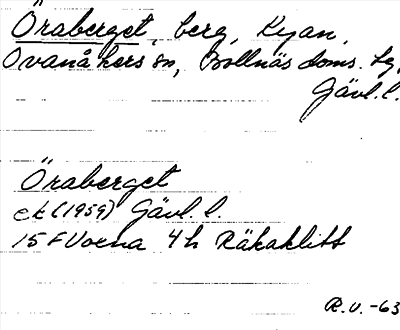 Öraberget, berg, Kyan,
Ovanåkers sn, Bollnäs doms. hg,
Gävl. l.
Öraberget
ek (1959) Gävl. l.
15 F Voxna 4h Räkaklitt
R.U. -63